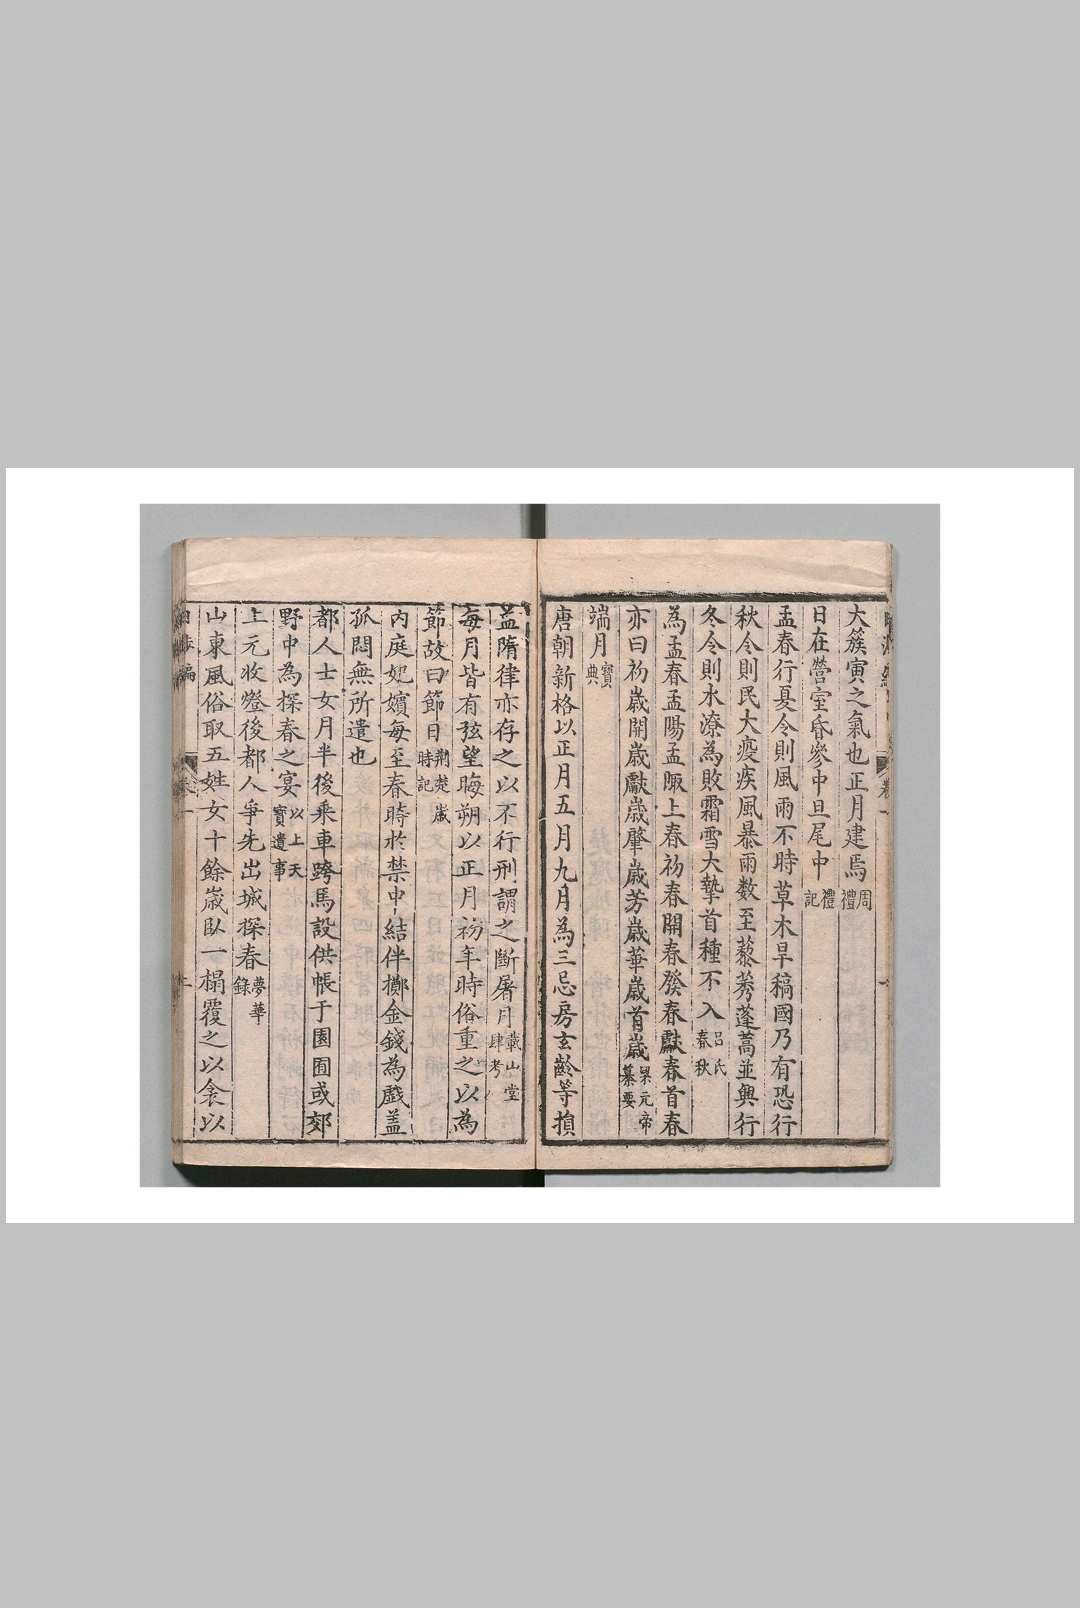 大簇寅之氣也正月建焉周禮
日在營室昏參中旦尾中禮記
孟春行夏令則風雨不時草木旱稿國乃有恐行
秋令則民大疫疾風暴雨數至藜莠蓬蒿並興行
冬令則水潦為敗霜雪大摯首種不入呂氏春秋
為孟春孟陽孟陬上春初春開春發春獻春首春
亦曰初歲開歲獻歲肇歲芳歲華歲首歲梁元帝纂要
端月寶典
唐朝新格以正月五月九月為三忌房玄齡等損
益隋律亦存之以不行刑謂之斷屠月戴山堂肆考
每月皆有弦望晦朔以正月初年時俗重之以為
節故曰節日荊楚歲時記
內庭妃嬪每至春時於禁中結伴擲金錢為戲蓋
孤悶無所遣也
都人士女月半後乘車跨馬設供帳于園囿或郊
野中為探春之宴以上天寶遺事
上元收燈後都人爭先出城探春夢華錄
山東風俗取五姓女十餘歲臥一榻覆之以衾以
編
卷一
二